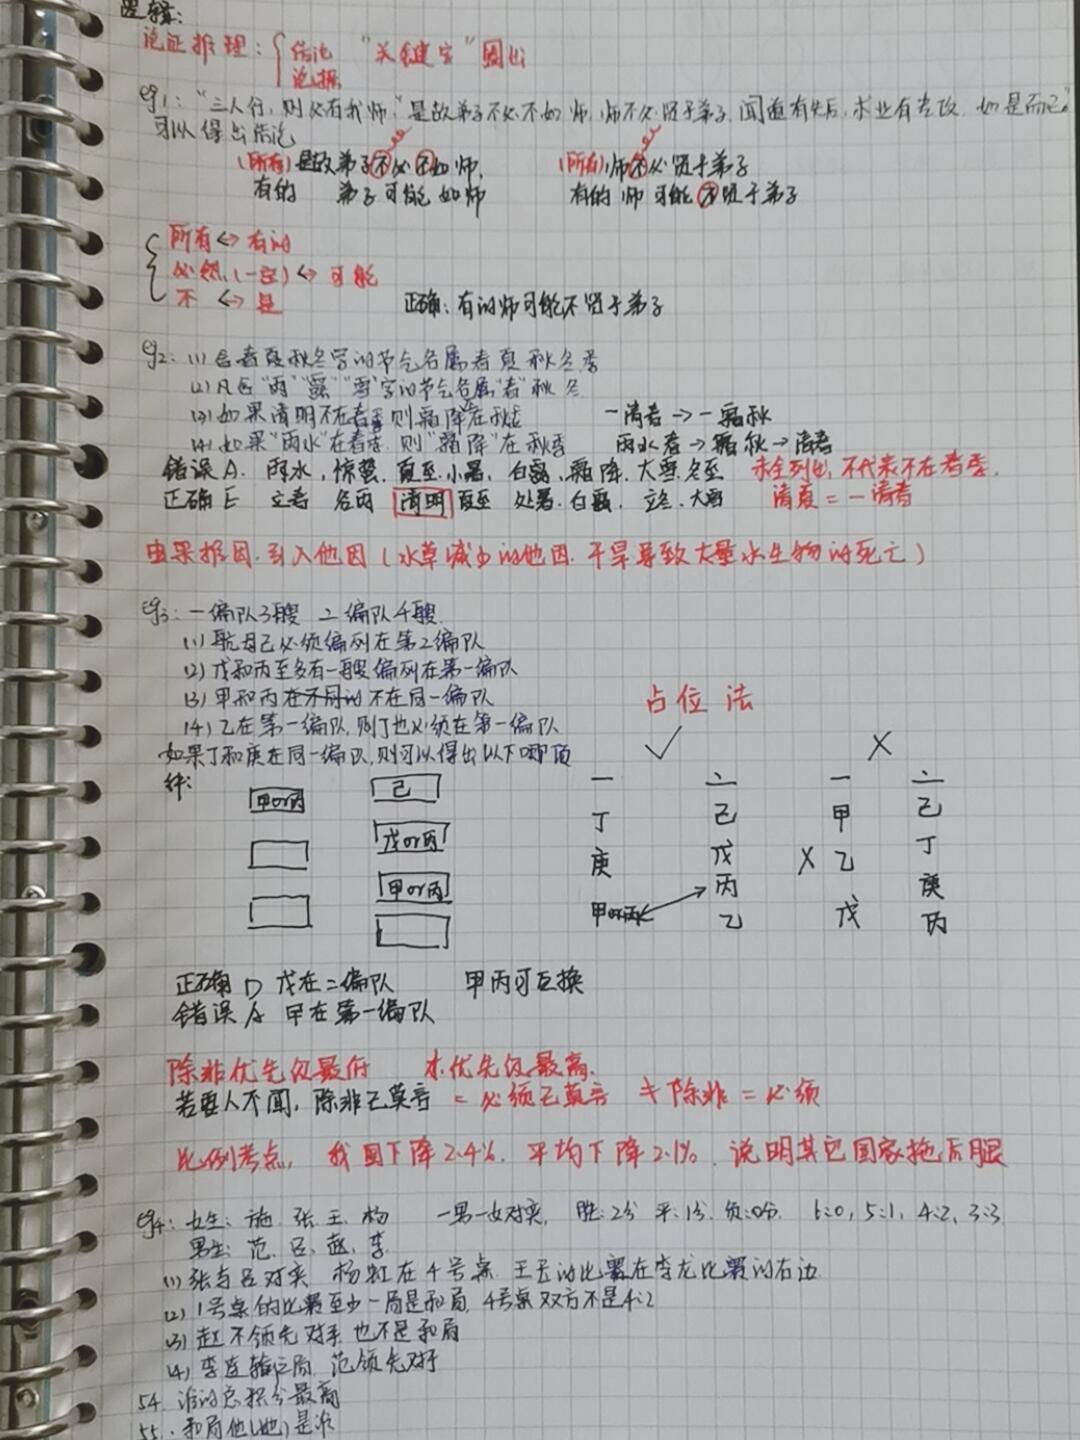 逻辑:
论证推理: 结论 "关键字" 圈出
论据
eg1: "三人行,则必有我师,"是故弟子不必不如师,师不必贤于弟子,闻道有先后,术业有专攻,如是而已"
可以得出结论
(所有)是故弟子不必不如师, (所有)师不必贤于弟子
有的 弟子可能如师 有的师可能不贤于弟子
所有<->有的
必然(一定)<->可能
不 <-> 是 正确:有的师可能不贤于弟子
eg2: (1) 含春夏秋冬字的节气各属春夏秋冬季
(2) 凡含"雨""露""雪"字的节气各属"春"秋冬
(3) 如果清明不在春季则霜降不在秋季 一清春→一霜秋
(4) 如果"雨水"在春季,则"霜降"在秋季 雨水春→霜秋→清春
错误A. 雨水,惊蛰,夏至,小暑,白露,霜降,大雪,冬至 未全列出,不代表不在春季.
正确E 立春 谷雨 清明 夏至 处暑.白露,立冬.大雪 清夏=一清春
由果推因.引入他因(水草减少的他因.干旱导致大量水生物的死亡)
eg3: 一编队3艘 二编队4艘
(1) 航母己必须编列在第2编队
(2) 戊和丙至多有一艘编列在第一编队
(3) 甲和丙在不同的不在同一编队
(4) 乙在第一编队,则丁也必须在第一编队 占位法
如果丁和庚在同一编队,则可以得出以下哪项 ✓ X
甲or丙 己 一 二 一 二
戊or丙 丁 己 甲 己
甲or丙 庚 戊 X 乙 丁
丙 庚
甲or丙 乙 戊 丙
正确D 戊在二编队 甲丙可互换
错误A 甲在第一编队
除非优先级最低 才优先级最高.
若要人不闻,除非己莫言 = 必须己莫言 才除非=必须
比例考点, 我国下降2.4%. 平均下降2.1%. 说明其它国家拖后腿
eg4: 女生: 施.张.王.杨 一男一女对弈, 胜:2分 平:1分.负:0分. 6:0, 5:1, 4:2, 3:3
男生: 范.吕.赵.李.
(1) 张与吕对弈 杨虹在4号桌 王玉的比赛在李龙比赛的右边
(2) 1号桌的比赛至少一局是和局,4号桌双方不是4:2
(3) 赵不领先对手.也不是和局
(4) 李连输三局,范领先对手
54. 谁的总积分最高
55. 和局他(她)是谁